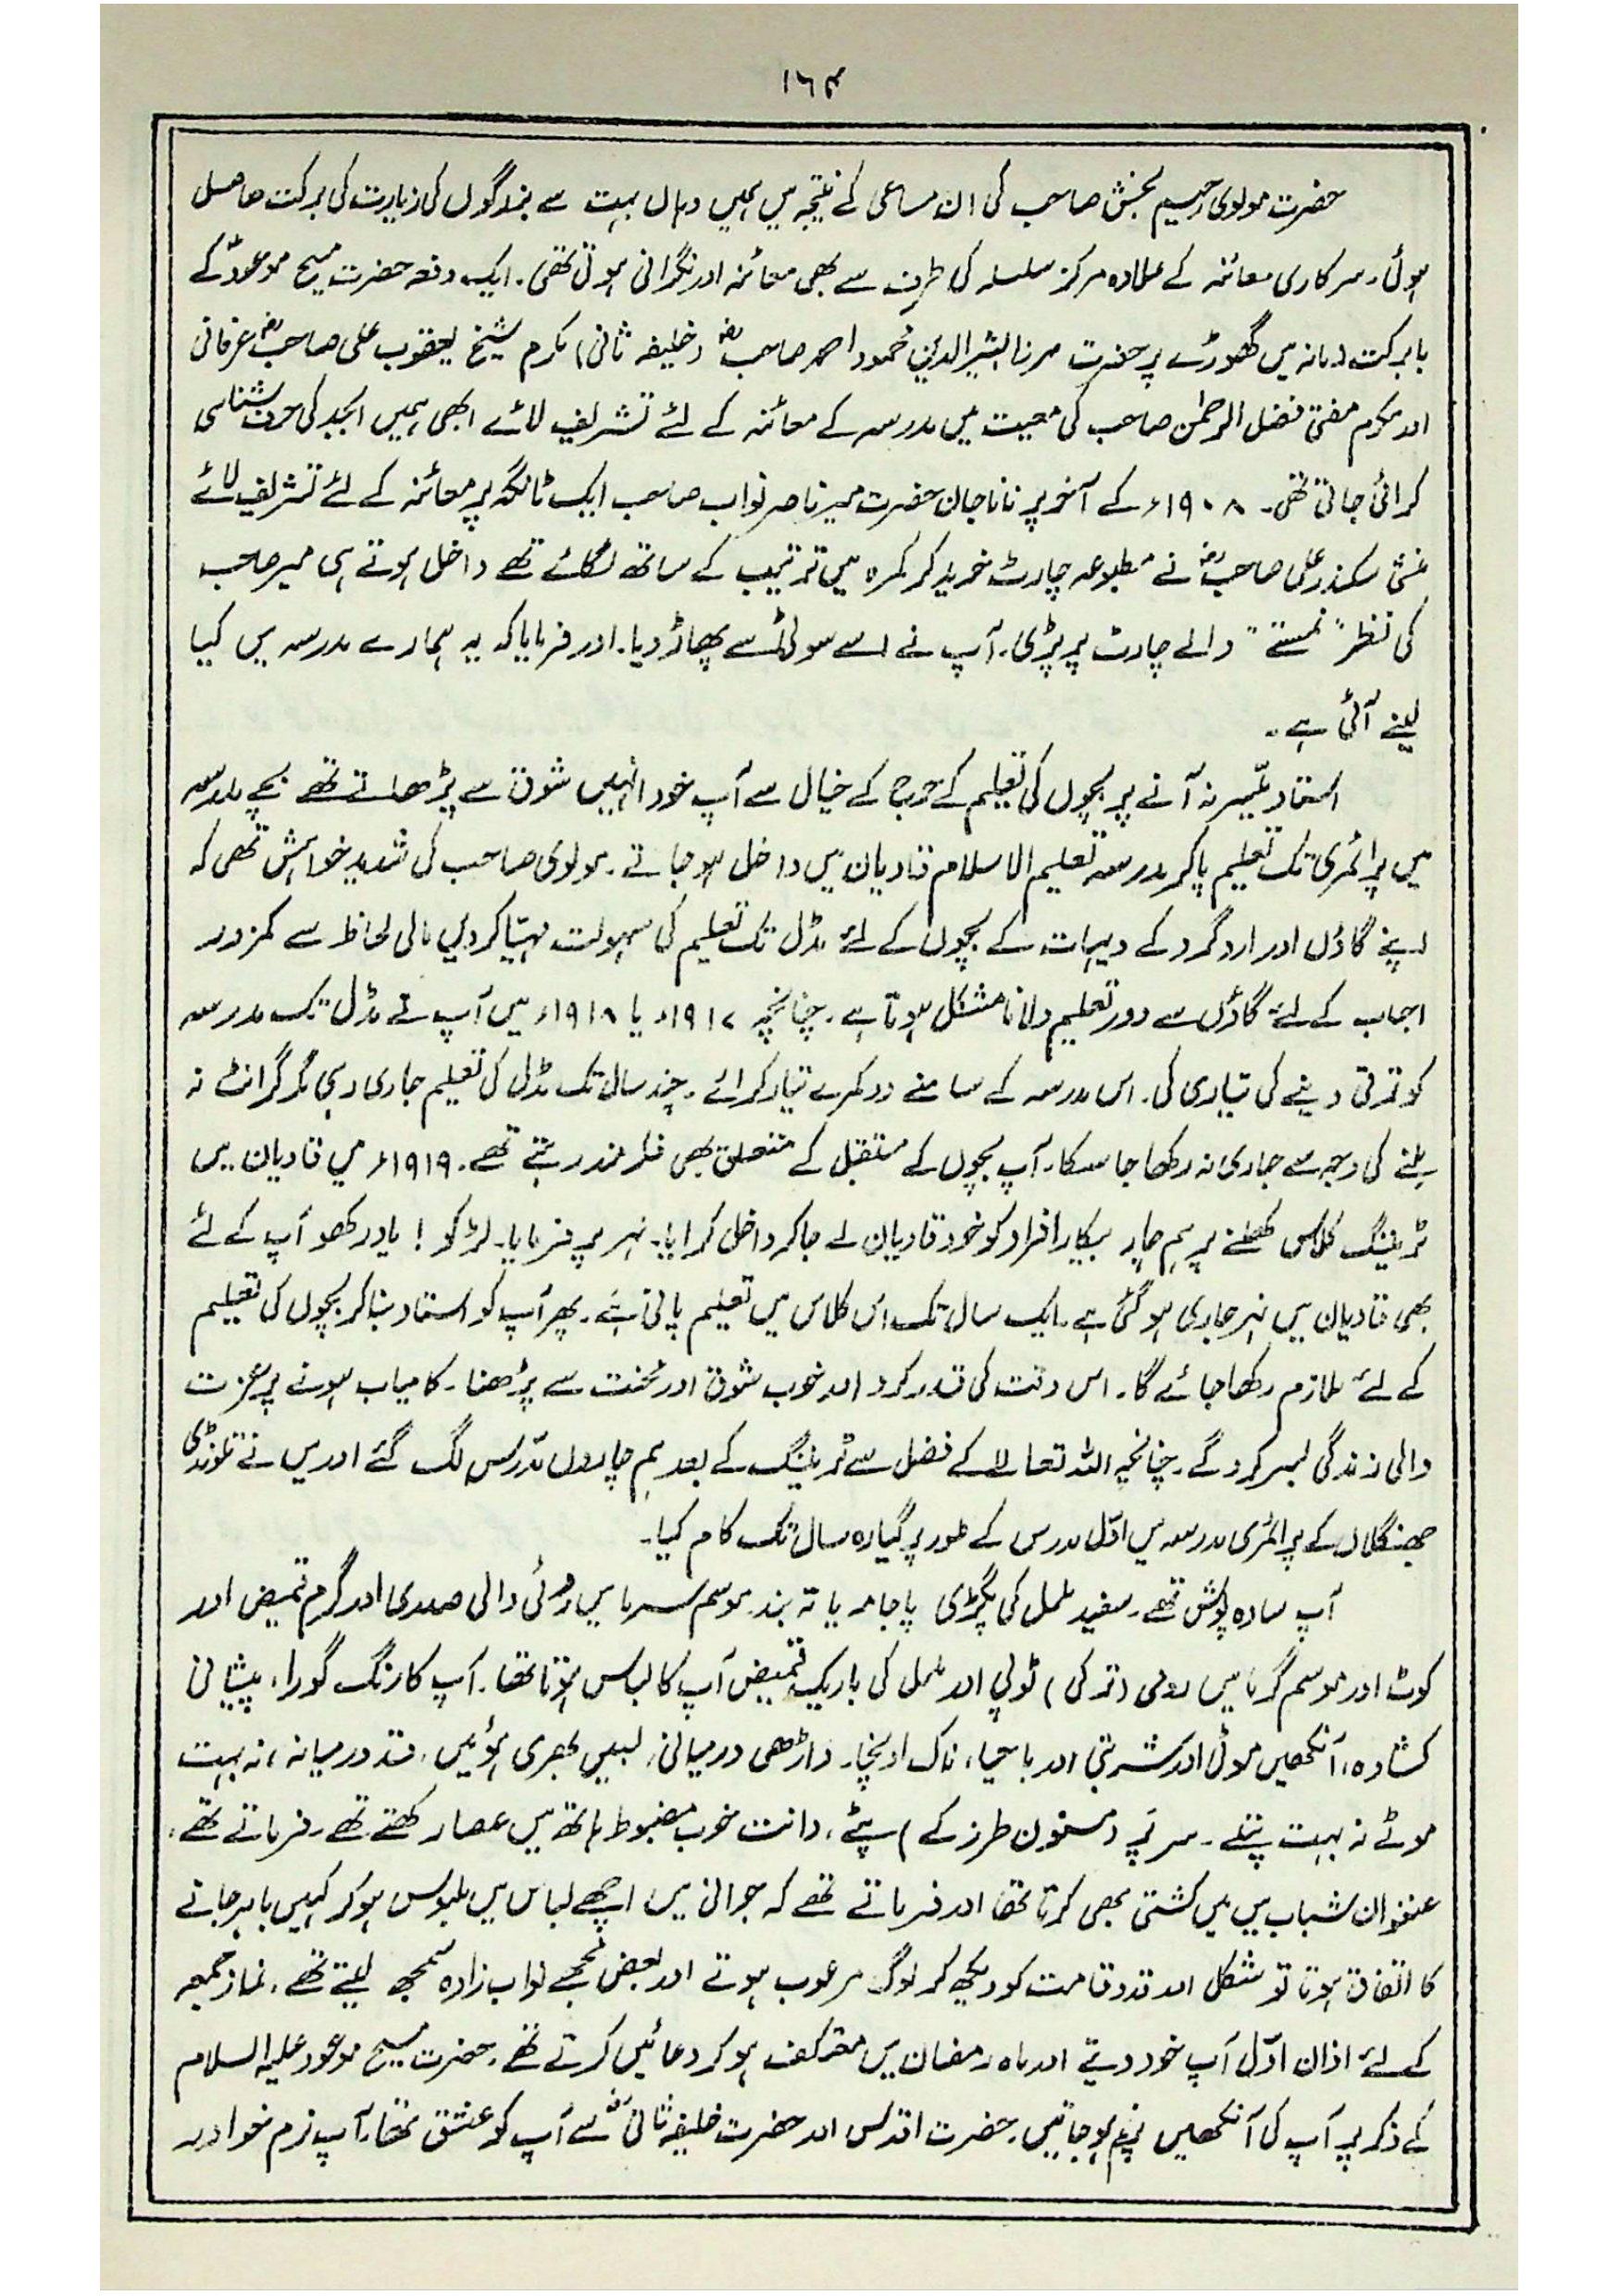 ۱۶۴
حضرت مولوی رحیم بخش صاحب کی ان مساعی کے نتیجہ میں ہمیں وہاں بہت سے بزرگوں کی زیارت کی برکت حاصل
ہوئی۔ سرکاری معائنہ کے علاوہ مرکز سلسلہ کی طرف سے بھی معائنہ اور نگرانی ہوتی تھی۔ ایک دفعہ حضرت مسیح موعودؑ کے
بابرکت زمانہ میں گھوڑے پر حضرت مرزا بشیر الدین محمود احمد صاحبؓ (خلیفہ ثانی) مکرم شیخ یعقوب علی صاحبؓ عرفانی
اور مکرم مفتی فضل الرحمٰن صاحب کی معیت میں مدرسہ کے معائنہ کے لئے تشریف لائے ابھی ہمیں ابجد کی حرف شناسی
کرائی جاتی تھی۔ ۱۹۰۸ء کے آخر پر نانا جان حضرت میر ناصر نواب صاحب ایک ٹانگہ پر معائنہ کے لئے تشریف لائے
منشی سکندر علی صاحبؓ نے مطبوعہ چارٹ خرید کر کمرہ میں ترتیب کے ساتھ لگائے تھے داخل ہوتے ہی میر صاحب
کی نظر "نمستے" والے چارٹ پر پڑی۔ آپ نے اسے سوٹی سے پھاڑ دیا۔ اور فرمایا کہ یہ ہمارے مدرسہ میں کیا
لینے آئی ہے۔
استاد میسر نہ آنے پر بچوں کی تعلیم کے حرج کے خیال سے آپ خود انہیں شوق سے پڑھاتے تھے بچے مدرسہ
میں پرائمری تک تعلیم پا کر مدرسہ تعلیم الاسلام قادیان میں داخل ہو جاتے۔ مولوی صاحب کی شدید خواہش تھی کہ
اپنے گاؤں اور اردگرد کے دیہات کے بچوں کے لئے مڈل تک تعلیم کی سہولت مہیّا کر دیں مالی لحاظ سے کمزور
احباب کے لئے گاؤں سے دور تعلیم دلانا مشکل ہوتا ہے۔ چنانچہ ۱۹۱۷ء یا ۱۹۱۸ء میں آپ نے مڈل تک مدرسہ
کو ترقی دینے کی تیاری کی۔ اس مدرسہ کے سامنے دو کمرے تیار کرائے۔ چند سال تک مڈل کی تعلیم جاری رہی مگر گرانٹ نہ
ملنے کی وجہ سے جاری نہ رکھا جا سکا۔ آپ بچوں کے مستقبل کے متعلق بھی فکر مند رہتے تھے۔ ۱۹۱۹ء میں قادیان میں
ٹریننگ کلاس کھلنے پر ہم چار بیکار افراد کو خود قادیان لے جا کر داخل کرایا۔ نہر پر فرمایا۔ لڑکو! یاد رکھو آپ کے لئے
بھی قادیان میں نہر جاری ہو گئی ہے۔ ایک سال تک اس کلاس میں تعلیم پانی ہے۔ پھر آپ کو استاد بنا کر بچوں کی تعلیم
کے لئے ملازم رکھا جائے گا۔ اس وقت کی قدر کرو اور خوب شوق اور محنت سے پڑھنا۔ کامیاب ہونے پر عزت
والی زندگی بسر کرو گے۔ چنانچہ اللہ تعالےٰ کے فضل سے ٹریننگ کے بعد ہم چاروں مدرس لگ گئے اور میں نے تلونڈی
جھنگلاں کے پرائمری مدرسہ میں اوّل مدرس کے طور پر گیارہ سال تک کام کیا۔
آپ سادہ پوش تھے۔ سفید ململ کی پگڑی پاجامہ یا تہ بند۔ موسم سرما میں روئی والی صدری اور گرم قمیض اور
کوٹ اور موسم گرما میں رومی (ترکی) ٹوپی اور ململ کی باریک قمیض آپ کا لباس ہوتا تھا۔ آپ کا رنگ گورا، پیشانی
کشادہ، آنکھیں موٹی اور شربتی اور باحیا، ناک اونچا۔ داڑھی درمیانی، لبیں بھری ہوئیں، قد درمیانہ، نہ بہت
موٹے نہ بہت پتلے۔ سر پر (مسنون طرز کے) پٹے، دانت خوب مضبوط ہاتھ میں عصا رکھتے تھے۔ فرماتے تھے،
عنفوان شباب میں میں کشتی بھی کرتا تھا اور فرماتے تھے کہ جوانی میں اچھے لباس میں ملبوس ہو کر کہیں باہر جانے
کا اتفاق ہوتا تو شکل اور قدوقامت کو دیکھ کر لوگ مرعوب ہوتے اور بعض مجھے نواب زادہ سمجھ لیتے تھے۔ نماز جمعہ
کے لئے اذان اوّل آپ خود دیتے اور ماہ رمضان میں معتکف ہو کر دعائیں کرتے تھے۔ حضرت مسیح موعود علیہ السلام
کے ذکر پر آپ کی آنکھیں پُرنم ہو جاتیں۔ حضرت اقدس اور حضرت خلیفہ ثانیؓ سے آپ کو عشق تھا۔ آپ نرم خو اور